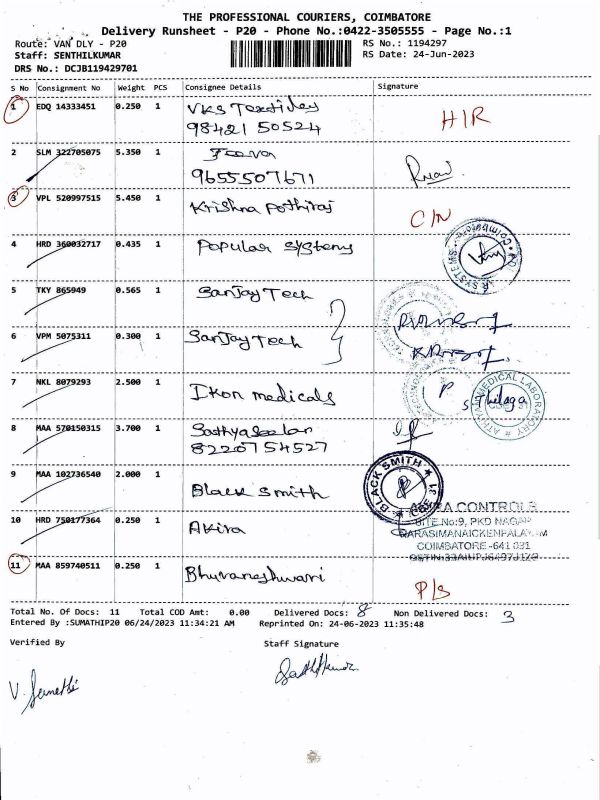 THE PROFESSIONAL COURIERS, COIMBATORE
Delivery Runsheet - P20 - Phone No.:0422-3505555 - Page No.:1
Route: VAN DLY - P20 RS No.: 1194297
Staff: SENTHILKUMAR RS Date: 24-Jun-2023
DRS No.: DCJB119429701
S No Consignment No Weight PCS Consignee Details Signature
1 EDQ 14333451 0.250 1 VKS Textiles H/R
98421 50524
2 SLM 322705075 5.350 1
9655507671
3 VPL 520997515 5.450 1 Krishna Pothiraj C/N
4 HRD 360032717 0.435 1 Popular Systems
5 TKY 865949 0.565 1 Sanjay Tech
6 VPM 5075311 0.300 1 Sanjay Tech
7 NKL 8079293 2.500 1 Ikon medicals P S Thilaga
MEDICAL LABORATORY
8 MAA 570150315 3.700 1
8220754527
9 MAA 102736540 2.000 1 Black Smith
BLACK SMITH
10 HRD 750177364 0.250 1 Akira
CONTROLS
SITE No:9, PKD NAGAR
NARASIMANAICKENPALAYAM
COIMBATORE-641 031
11 MAA 859740511 0.250 1 Bhuvaneshwari P/S
Total No. Of Docs: 11 Total COD Amt: 0.00 Delivered Docs: 8 Non Delivered Docs: 3
Entered By :SUMATHIP20 06/24/2023 11:34:21 AM Reprinted On: 24-06-2023 11:35:48
Verified By Staff Signature
V. Sumathi